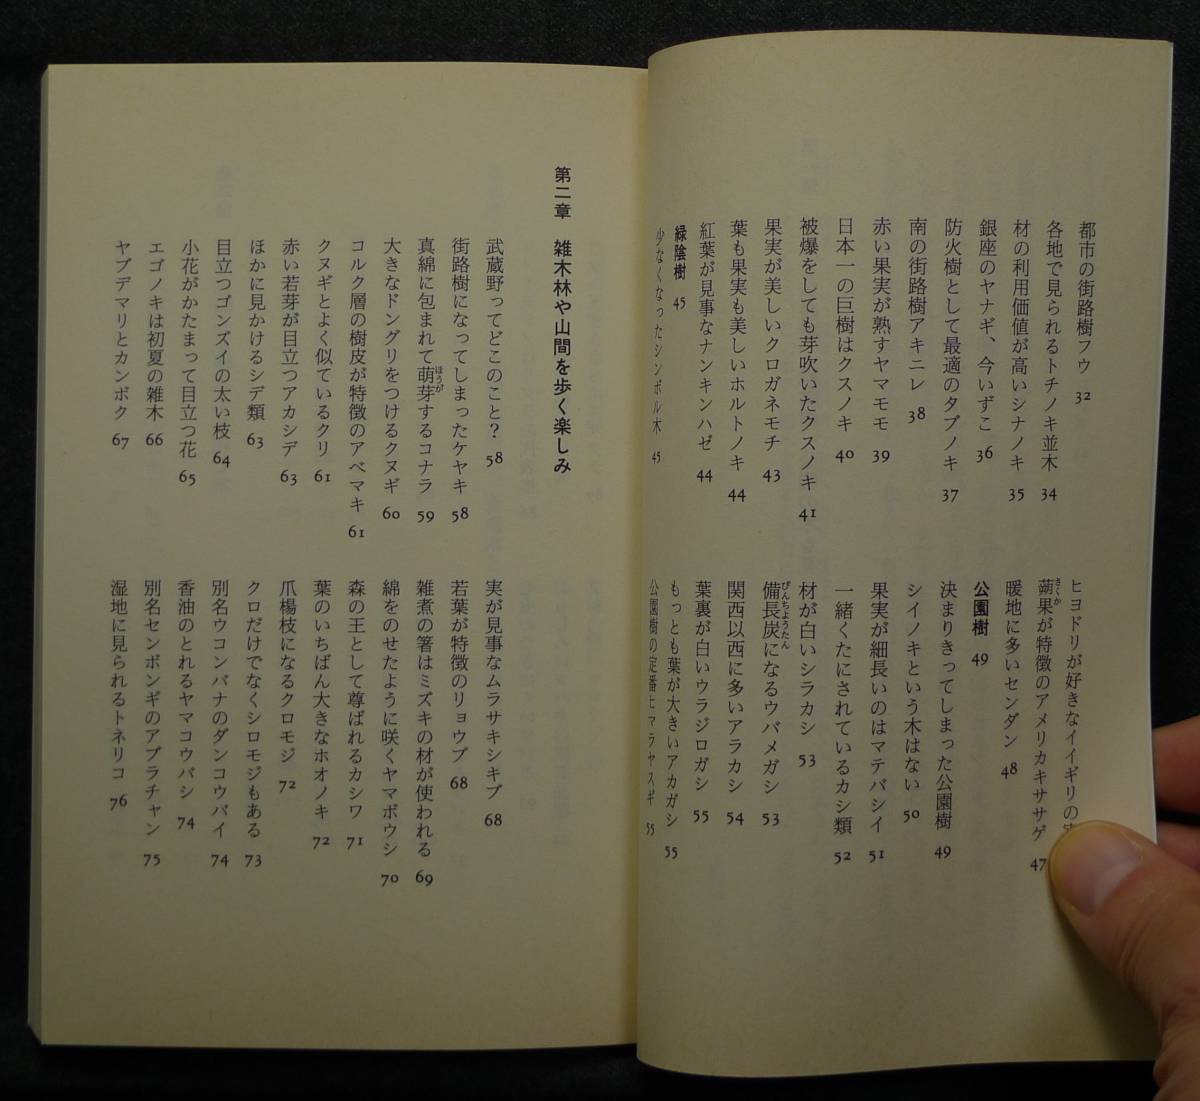 都市の街路樹フウ 32
各地で見られるトチノキ並木 34
材の利用価値が高いシナノキ 35
銀座のヤナギ、今いずこ 36
防火樹として最適のタブノキ 37
南の街路樹アキニレ 38
赤い果実が熟すヤマモモ 39
日本一の巨樹はクスノキ 40
被爆をしても芽吹いたクスノキ 41
果実が美しいクロガネモチ 43
葉も果実も美しいホルトノキ 44
紅葉が見事なナンキンハゼ 44
緑陰樹 45
少なくなったシンボル木 45
ヒヨドリが好きなイイギリの
蒴果が特徴のアメリカキササゲ 47
さくか
暖地に多いセンダン 48
公園樹 49
決まりきってしまった公園樹 49
シイノキという木はない 50
果実が細長いのはマテバシイ 51
一緒くたにされているカシ類 52
材が白いシラカシ 53
備長炭になるウバメガシ 53
びんちょうたん
関西以西に多いアラカシ 54
葉裏が白いウラジロガシ 55
もっとも葉が大きいアカガシ 55
公園樹の定番ヒマラヤスギ 55
第二章 雑木林や山間を歩く楽しみ
武蔵野ってどこのこと? 58
街路樹になってしまったケヤキ 58
真綿に包まれて萌芽するコナラ 59
ほうが
大きなドングリをつけるクヌギ 60
コルク層の樹皮が特徴のアベマキ 61
クヌギとよく似ているクリ 61
赤い若芽が目立つアカシデ 63
ほかに見かけるシデ類 63
目立つゴンズイの太い枝 64
小花がかたまって目立つ花 65
エゴノキは初夏の雑木 66
ヤブデマリとカンボク 67
実が見事なムラサキシキブ 68
若葉が特徴のリョウブ 68
雑煮の箸はミズキの材が使われる 69
綿をのせたように咲くヤマボウシ 70
森の王として尊ばれるカシワ 71
葉のいちばん大きなホオノキ 72
爪楊枝になるクロモジ 72
クロだけでなくシロモジもある 73
別名ウコンバナのダンコウバイ 74
香油のとれるヤマコウバシ 74
別名センボンギのアブラチャン 75
湿地に見られるトネリコ 76